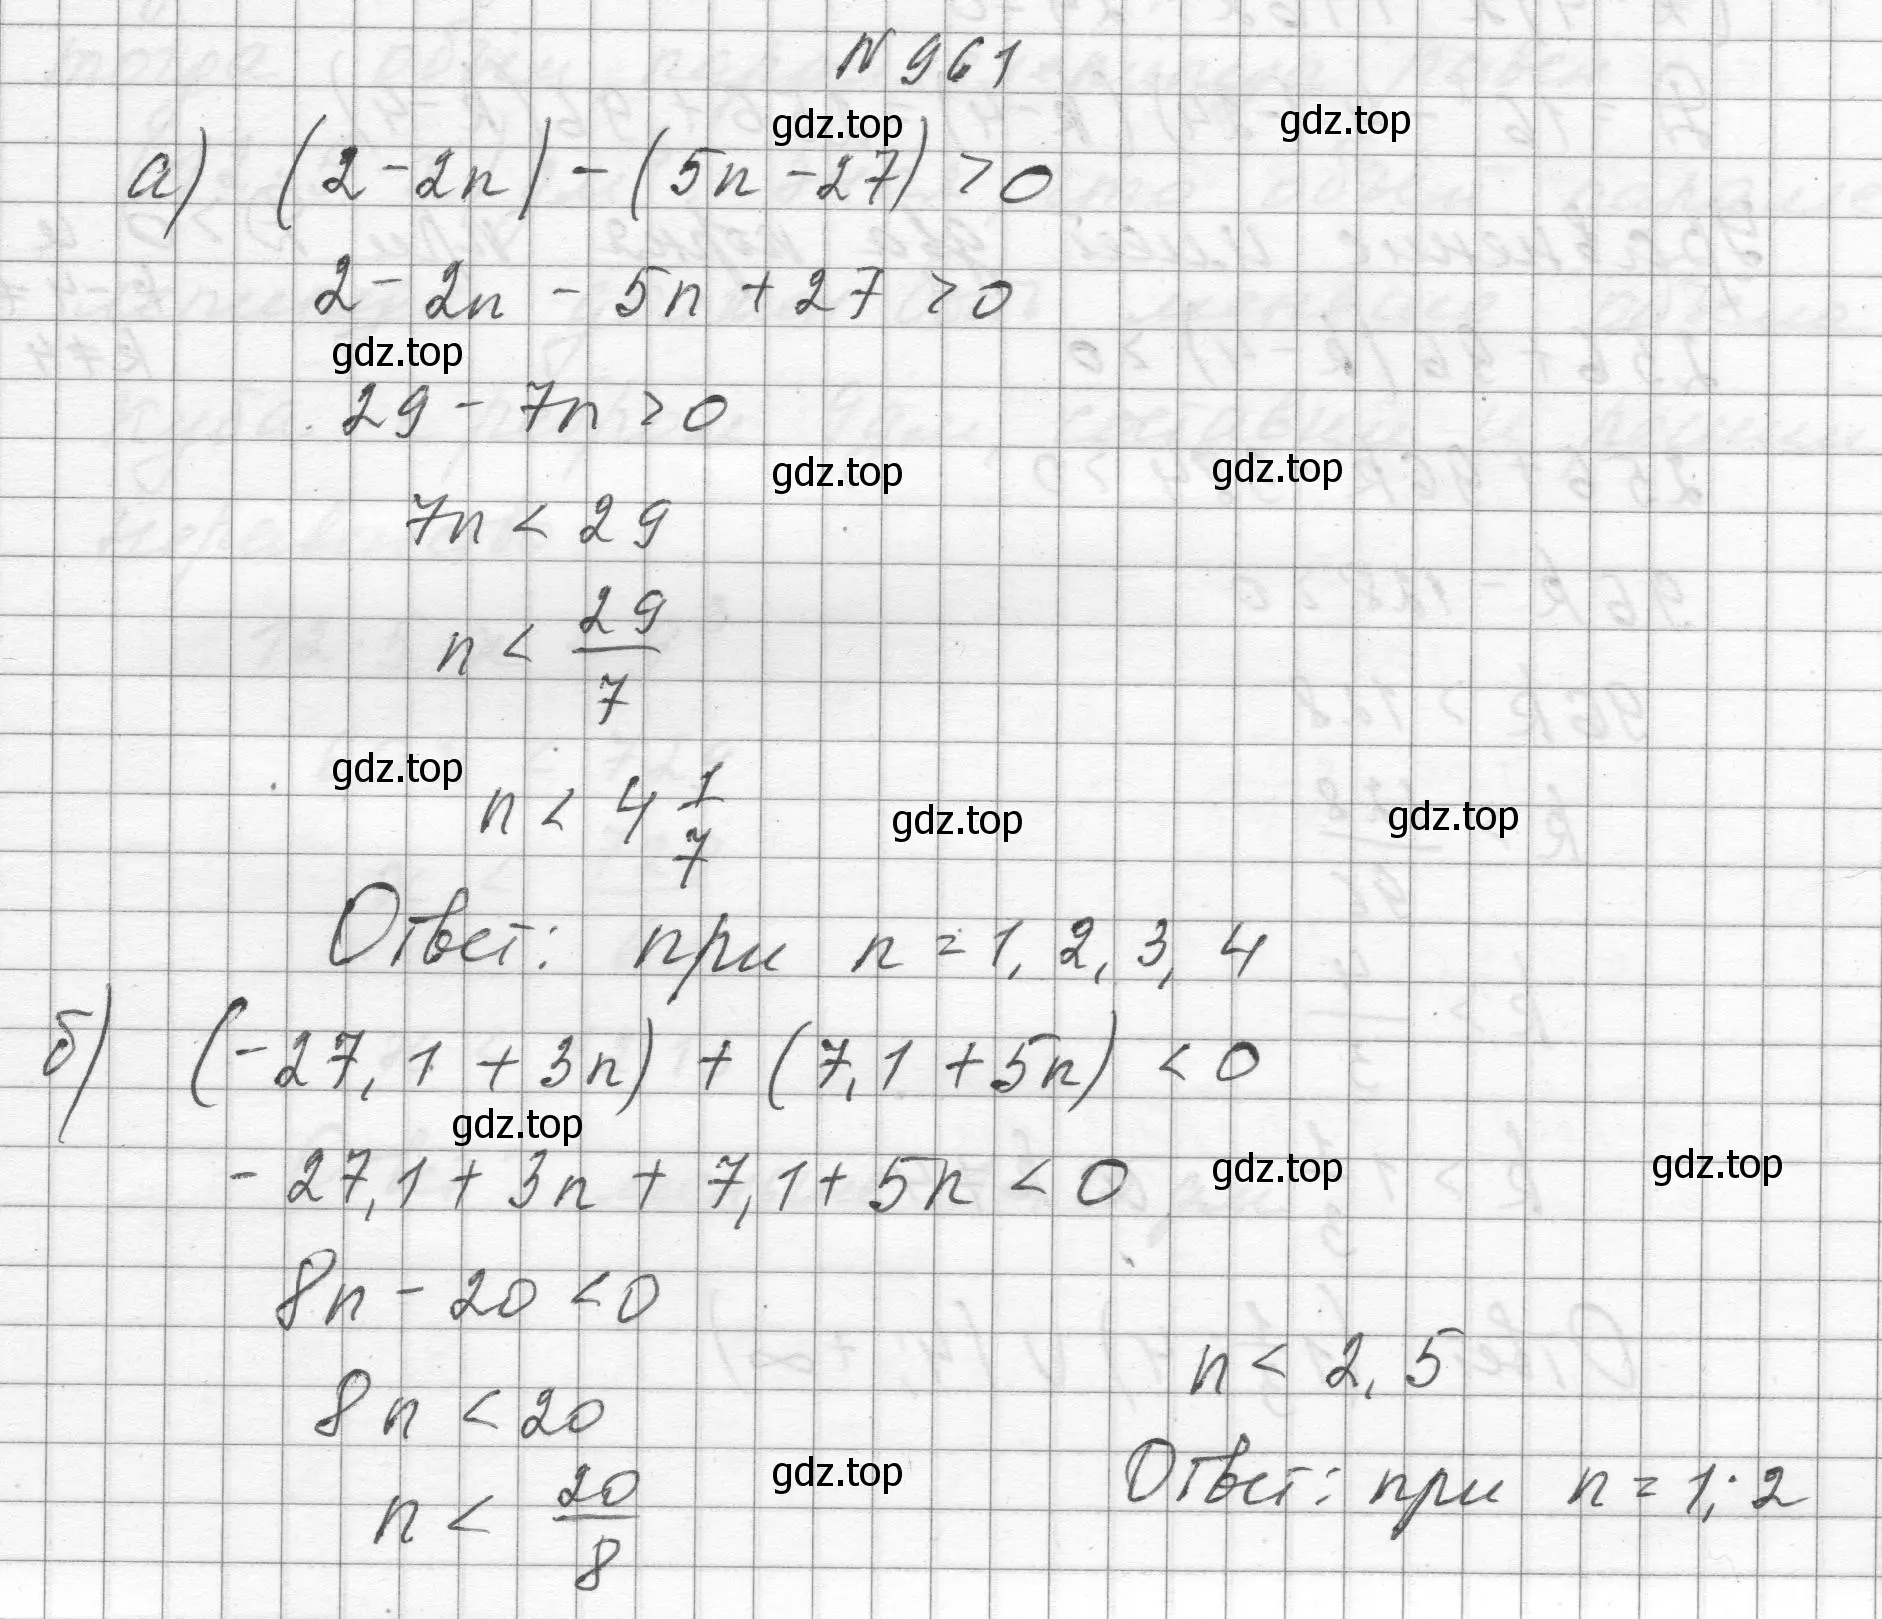 N 961
gdz.top gdz.top
а) (2-2n) - (5n-27) > 0
2 - 2n - 5n + 27 > 0
gdz.top
29 - 7n > 0
gdz.top gdz.top
7n < 29
n < 29/7
gdz.top
n < 4 1/7
gdz.top gdz.top
Ответ: при n = 1, 2, 3, 4
б) (-27,1 + 3n) + (7,1 + 5n) < 0
gdz.top
- 27,1 + 3n + 7,1 + 5n < 0
gdz.top gdz.top
8n - 20 < 0
8n < 20
n < 20/8
gdz.top
n < 2,5
Ответ: при n = 1; 2